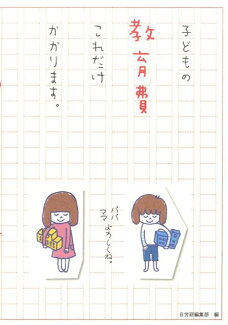 子どもの
教育費
これだけ
かかります。
パパ
ママ
よろしくね。
日労研編集部 編